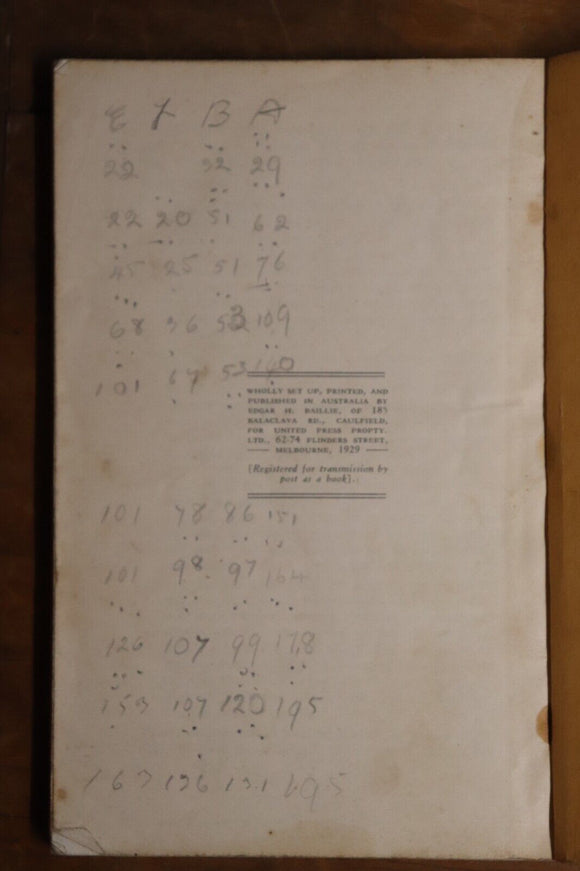 E Y B A
22 32 29
22 20 51 62
45 25 51 76
68 36 53 109
101 67 53 140
WHOLLY SET UP, PRINTED, AND
PUBLISHED IN AUSTRALIA BY
EDGAR H. BAILLIE, OF 185
BALACLAVA RD., CAULFIELD,
FOR UNITED PRESS PROPTY.
LTD., 62-74 FLINDERS STREET,
MELBOURNE, 1929
[Registered for transmission by
post as a book].
101 78 86 151
101 98 97 164
126 107 99 178
153 107 120 195
163 136 131 195